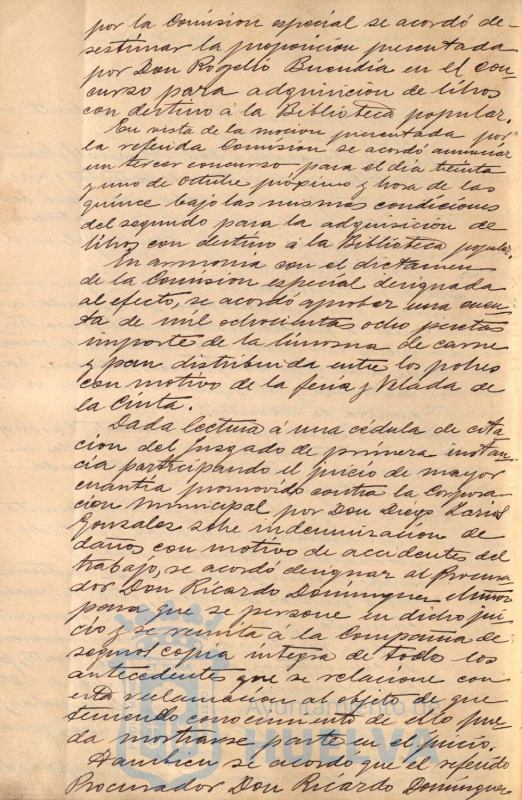 por la Comision especial se acordó de-
sestimar la proposicion presentada
por Don Rogelio Buendia en el con-
curso para adquisicion de libros
con destino á la Biblioteca popular.
En vista de la mocion presentada por
la referida Comision se acordó anunciar
un tercer concurso para el dia treinta
y uno de Octubre próximo y hora de las
quince bajo las mismas condiciones
del segundo para la adquisicion de
libros con destino á la Biblioteca popular.
En armonia con el dictamen
de la Comision especial designada
al efecto, se acordó aprobar una cuen-
ta de mil ochocientas ocho pesetas
importe de la limosna de carne
y pan distribuida entre los pobres
con motivo de la feria y Velada de
la Cinta.
Dada lectura á una cédula de cita-
cion del Juzgado de primera instan-
cia participando el juicio de mayor
cuantia promovido contra la Corpora-
cion Municipal por Don Diego
Gonzalez sobre indemnizacion de
daños con motivo de accidentes del
trabajo, se acordó designar al Procura-
dor Don Ricardo Dominguez Muñoz
para que se persone en dicho jui-
cio y se remita á la Compañia de
seguros copia integra de todo los
antecedentes que se relacione con
esta reclamacion al objeto de que
teniendo conocimiento de ello pue-
da mostrarse parte en el juicio.
Tambien se acordo que el referido
Procurador Don Ricardo Dominguez
Ayuntamiento de
HUELVA